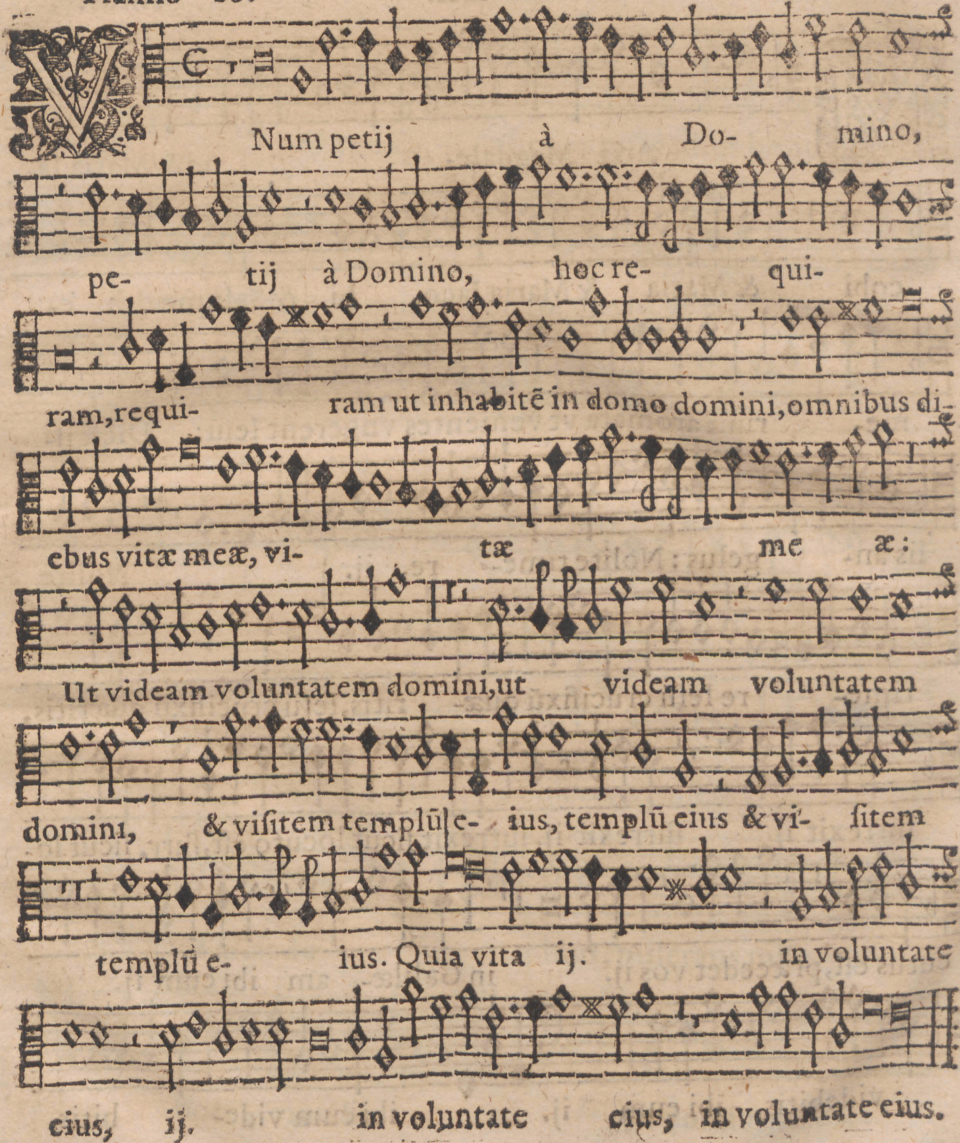 VNum petij à Do- mino,
pe- tij à Domino, hoc re- qui-
ram, requi- ram ut inhabitē in domo domini, omnibus di-
ebus vitæ meæ, vi- tæ me æ:
Ut videam voluntatem domini, ut videam voluntatem
domini, & visitem templū e- ius, templū eius & vi- sitem
templū e- ius. Quia vita ij. in voluntate
eius, ij. in voluntate eius, in voluntate eius.